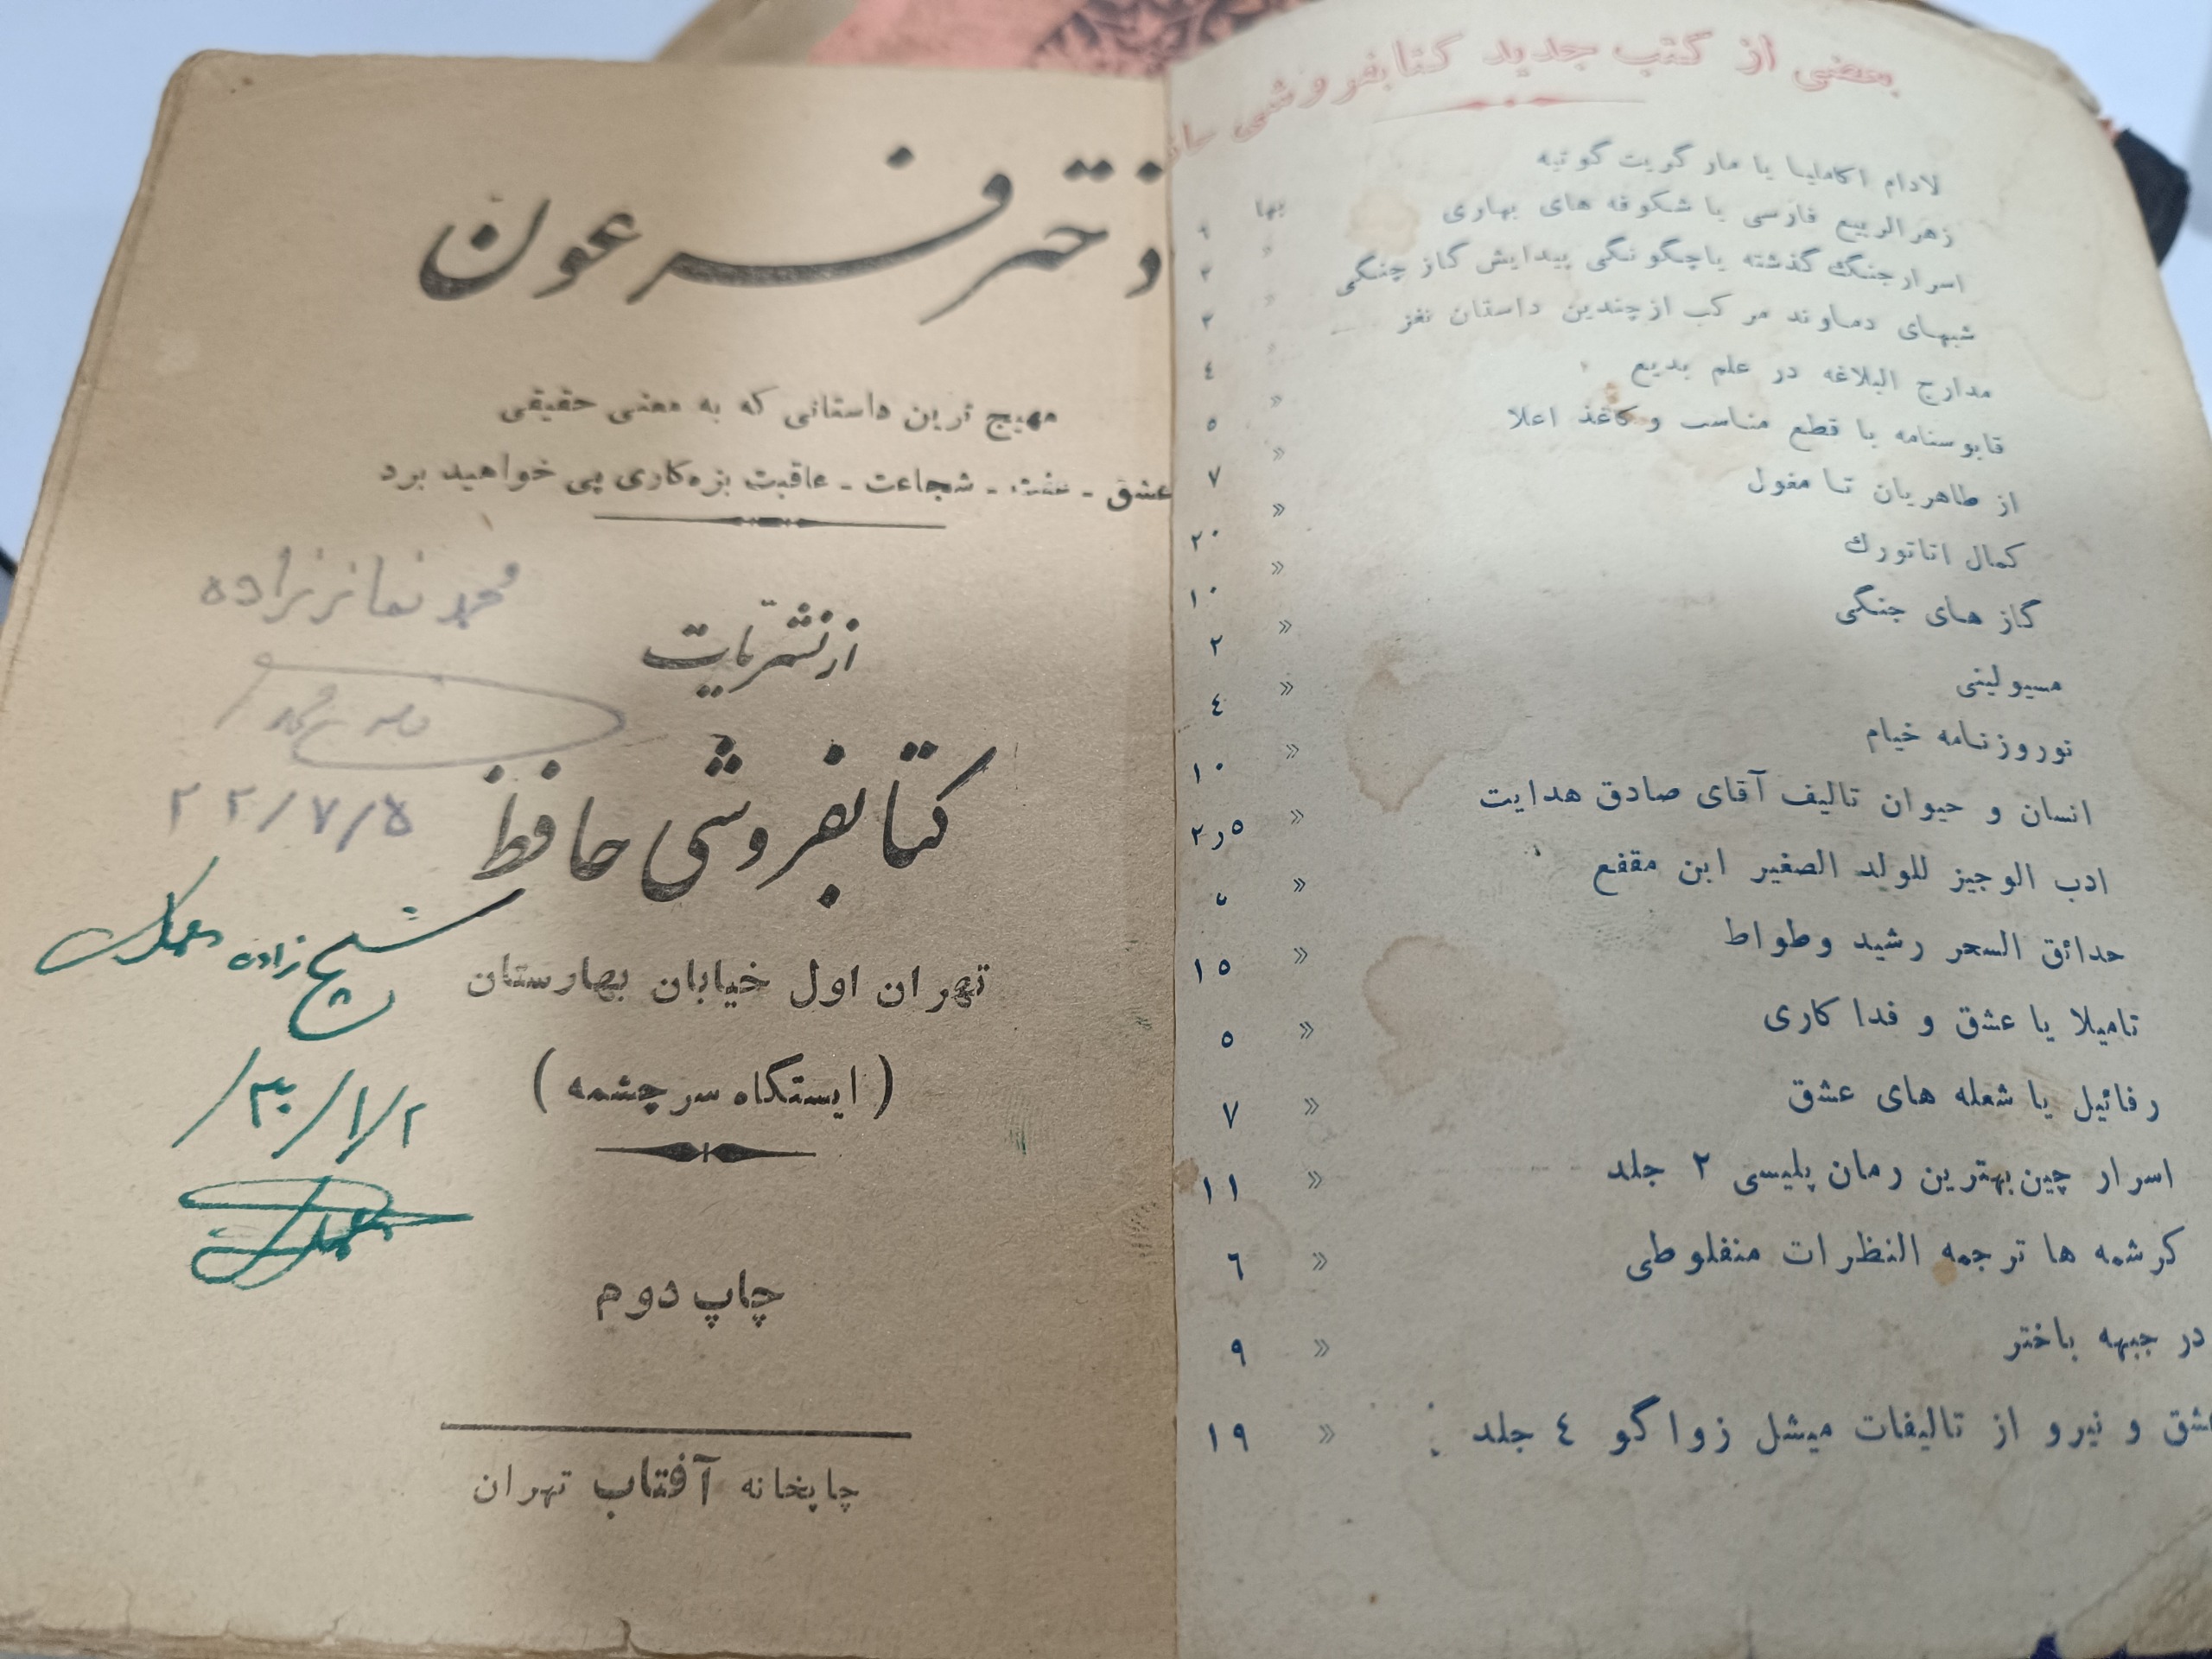 بعضی از کتب جدید کتابفروشی
لادام اکاملیا یا مارگریت گوتیه بها ۹
زهرالربیع فارسی یا شکوفه های بهاری » ۳
اسرار جنگ گذشته یا چگونگی پیدایش گاز جنگی » ۳
شبهای دماوند مرکب از چندین داستان نغز » ٤
مدارج البلاغه در علم بدیع » ٥
قابوسنامه با قطع مناسب و کاغذ اعلا » ۷
از طاهریان تا مغول » ۲۰
کمال اتاتورك » ۱۰
گاز های جنگی » ۲
مسیولینی » ٤
نوروزنامه خیام » ۱۰
انسان و حیوان تالیف آقای صادق هدایت » ٥ر۲
ادب الوجیز للولد الصغیر ابن مقفع »
حدائق السحر رشید وطواط » ۱٥
تامیلا یا عشق و فدا کاری » ٥
رفائیل یا شعله های عشق » ۷
اسرار چین بهترین رمان پلیسی ۲ جلد » ۱۱
کرشمه ها ترجمه النظرات منفلوطی » ٦
در جبهه باختر » ۹
و نیرو از تالیفات میشل زواگو ٤ جلد » ۱۹
دختر فرعون
مهیج ترین داستانی که به معنی حقیقی
عشق - عفت - شجاعت - عاقبت بزه‌کاری پی خواهید برد
محمد نمازیزاده
از نشریات
۲۲/۷/۵
کتابفروشی حافظ
شیخ زاده
تهران اول خیابان بهارستان
( ایستگاه سرچشمه )
۳۰/۱/۲
چاپ دوم
چاپخانه آفتاب تهران